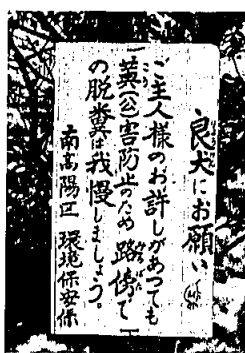 良犬にお願い
ご主人様のお許しがあっても
糞公害防止のため 路傍で
の脱糞は我慢しましょう。
南高陽区 環境保安係